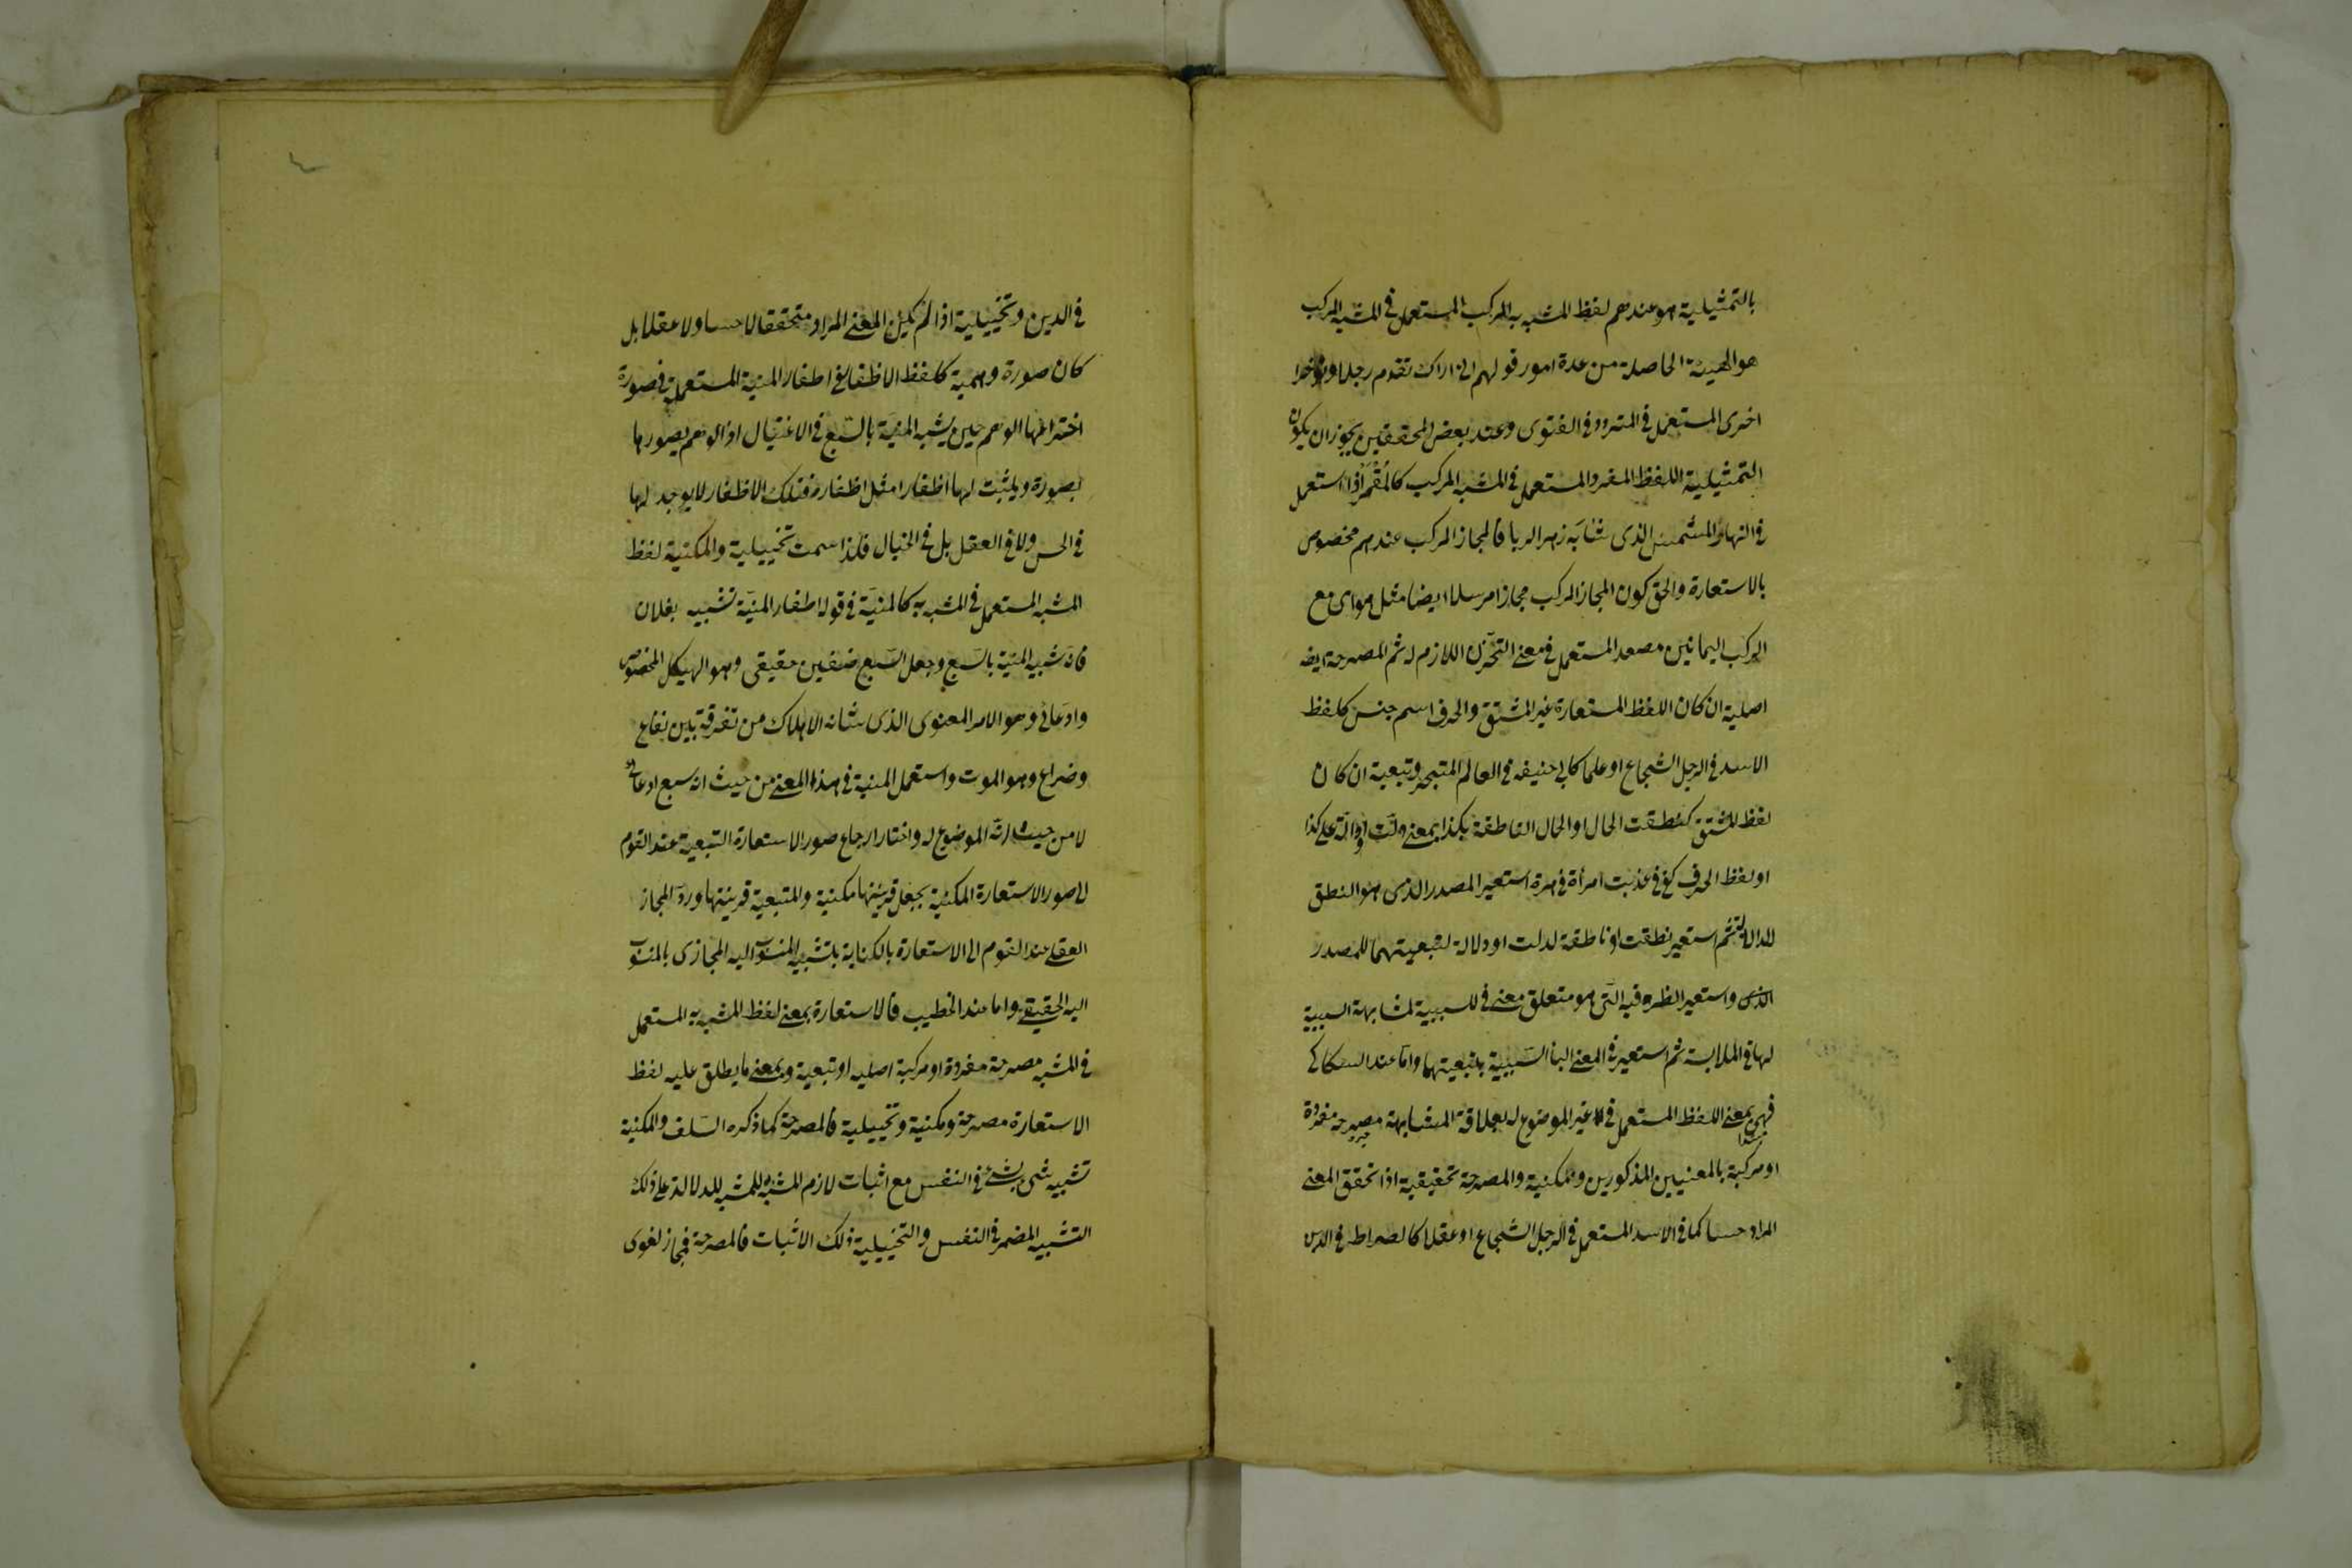 بالتمثيلية هو عندهم لفظ المشبه به المركب المستعمل في المشبه المركب
هو الهيئة الحاصلة من عدة امور قولهم اني اراك تقدم رجلا وتؤخر
اخرى المستعمل في المتردد في الفتوى وعند بعض المحققين يجوز ان يكون
التمثيلية اللفظ المفرد المستعمل في المشبه المركب كالمقمر اذا استعمل
في النهار المشمس الذي شابه زهر الربا فالمجاز المركب عندهم مخصوص
بالاستعارة والحق كون المجاز المركب مجازا مرسلا ايضا مثل هواي مع
الركب اليمانين مصعد المستعمل في معنى التحزن اللازم له ثم المصرحة ايضا
اصلية ان كان اللفظ المستعارة غير المشتق والحرف اسم جنس كلفظ
الاسد في الرجل الشجاع او علما كابي حنيفه في العالم المتبحر وتبعية ان كان
لفظ المشتق كنطقت الحال او الحال الناطقة بكذا بمعنى دلت او دالة على كذا
او لفظ الحرف كفي في عذبت امرأة في هرة استعير المصدر الذي هو النطق
للدلالة ثم استعير نطقت او ناطقة لدلت او دلالة لتبعيتهما للمصدر
الذي واستعير الظرفيه التي هو متعلق معنى في للسببية لمشابهة السببية
لها في الملابسة ثم استعير في لمعنى البا السببية بتبعيتها واما عند السكاكي
فهي بمعنى اللفظ المستعمل في غير الموضوع له لعلاقة المشابهة مصرحه مفردة
او مركبة بالمعنيين المذكورين ومكنية والمصرحة تحقيقية اذا تحقق المعنى
المراد حسا كما في الاسد المستعمل في الرجل الشجاع او عقلا كالصراط في الدين
في الدين وتخييلية اذا لم يكن المعنى المراد متحققا لا حسا ولا عقلا بل
كان صورة وهمية كلفظ الاظفار في اظفار المنية المستعملة في صورة
اخترعها الوهم حين يشبه المنية بالسبع في الاغتيال اذ الوهم يصورها
بصورة ويثبت لها اظفارا مثل اظفاره فتلك الاظفار لا يوجد لها
في الحس ولا في العقل بل في الخيال فلذا سمت تخييلية والمكنية لفظ
المشبه المستعمل في المشبه به كالمنية في قوله اظفار المنية نشبت بفلان
فانه شبه المنية بالسبع وجعل السبع صنفين حقيقي وهو الهيكل المخصوص
وادعائي وهو الامر المعنوي الذي شانه الاهلاك من تفرقة بين نفاع
وضراع وهو الموت واستعمل المنية في هذا المعنى من حيث انه سبع ادعائي
لا من حيث انه الموضوع له واختار ارجاع صور الاستعارة التبعية عند القوم
الى صور الاستعارة المكنية بجعل قرينتها مكنية والتبعية قرينتها ورد المجاز
العقلي عند القوم الى الاستعارة بالكناية بتشبيه المنسوب اليه المجازي بالمنسوب
اليه الحقيقي واما عند الخطيب فالاستعارة بمعنى لفظ المشبه به المستعمل
في المشبه مصرحة مفردة او مركبة اصليه او تبعية وبمعنى ما يطلق عليه لفظ
الاستعارة مصرحة ومكنية وتخييلية فالمصرحة كما ذكره السلف والمكنية
تشبيه شيء بشيء في النفس مع اثبات لازم المشبه به للمشبه للدلالة على ذلك
التشبيه المضمر في النفس والتخييلية ذلك الاثبات فالمصرحة مجاز لغوي